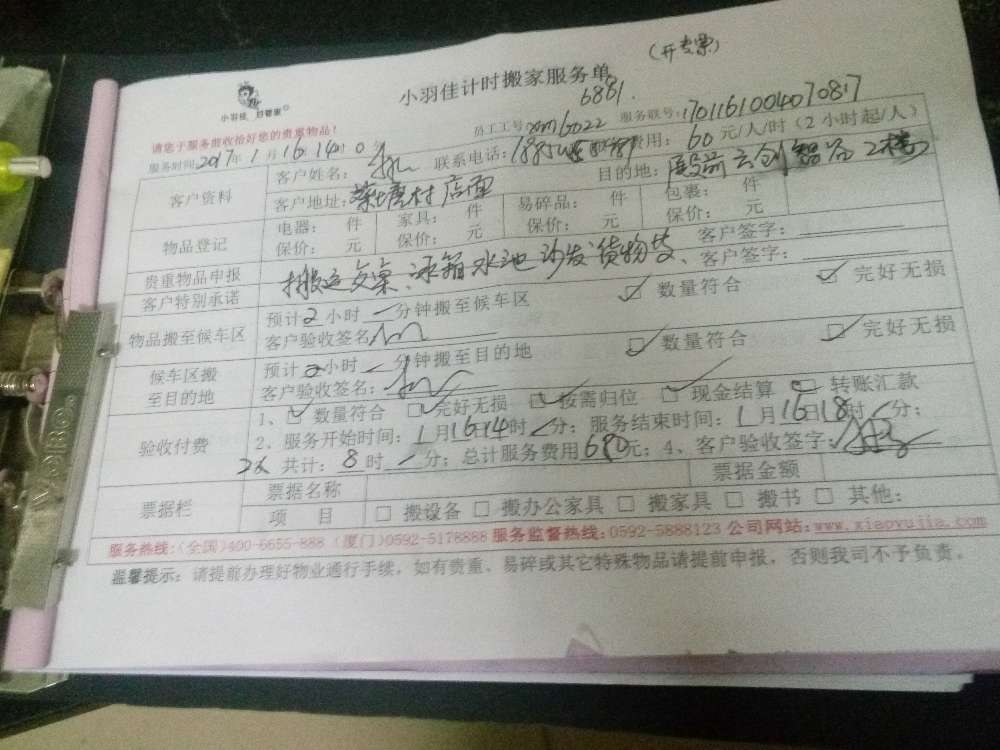 (开专票)
小羽佳计时搬家服务单
小羽佳 白管家
6881
请您于服务前收拾好您的贵重物品!
员工工号: 服务联号:1701161004070817
服务时间 2017年1月16日14时0分
客户资料 客户姓名: 联系电话: 费用: 60元/人/时(2小时起/人)
客户地址: 蔡塘村店面 目的地: 云创智谷2楼
物品登记 电器: 件 家具: 件 易碎品: 件 包裹: 件
保价: 元 保价: 元 保价: 元 保价: 元
贵重物品申报 客户签字:
客户特别承诺 搬运交桌、冰箱水池沙发货物 客户签字:
物品搬至候车区 预计2小时一分钟搬至候车区 数量符合 完好无损
客户验收签名
候车区搬至目的地 预计2小时一分钟搬至目的地 数量符合 完好无损
客户验收签名:
验收付费 1、数量符合 完好无损 按需归位 现金结算 转账汇款
2、服务开始时间: 1月16日14时 分; 服务结束时间: 1月16日18时 分;
2人 共计: 8时一分; 总计服务费用 元; 4、客户验收签字:
票据栏 票据名称 票据金额
项目 搬设备 搬办公家具 搬家具 搬书 其他:
服务热线:(全国)400-6655-888 (厦门)0592-5178888 服务监督热线:0592-5888123 公司网站:www.xiaoyujia.com
温馨提示: 请提前办理好物业通行手续,如有贵重、易碎或其它特殊物品请提前申报,否则我司不予负责。